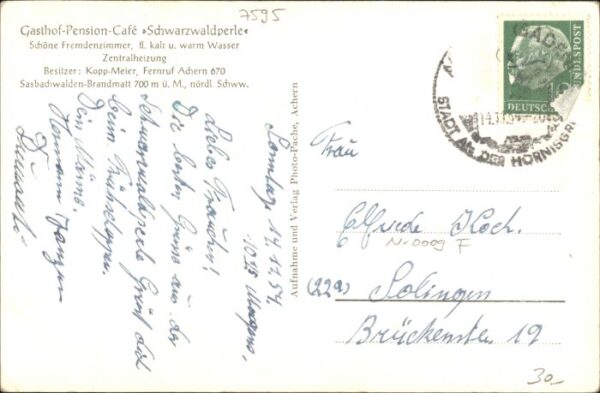 7595
Gasthof-Pension-Café »Schwarzwaldperle«
Schöne Fremdenzimmer, fl. kalt u. warm Wasser
Zentralheizung
Besitzer: Kopp-Meier, Fernruf Achern 670
Sasbachwalden-Brandmatt 700 m ü. M., nördl Schww.
Sonntag 14.11.54
10 25 Morgens.
Liebes Frauchen!
Die besten Grüsse aus der
Schwarzwaldperle Grüst dich
beim Frühschoppen.
Dein Männe.
Hermann
Aufnahme und Verlag Photo-Fache, Achern
BADE
14.11.54
STADT AN DER HORNISGR
DEUTSCHE
BUNDESPOST
Frau
Elfriede Koch.
N-0009 F
(22a) Solingen
Brückenstr 19
30-